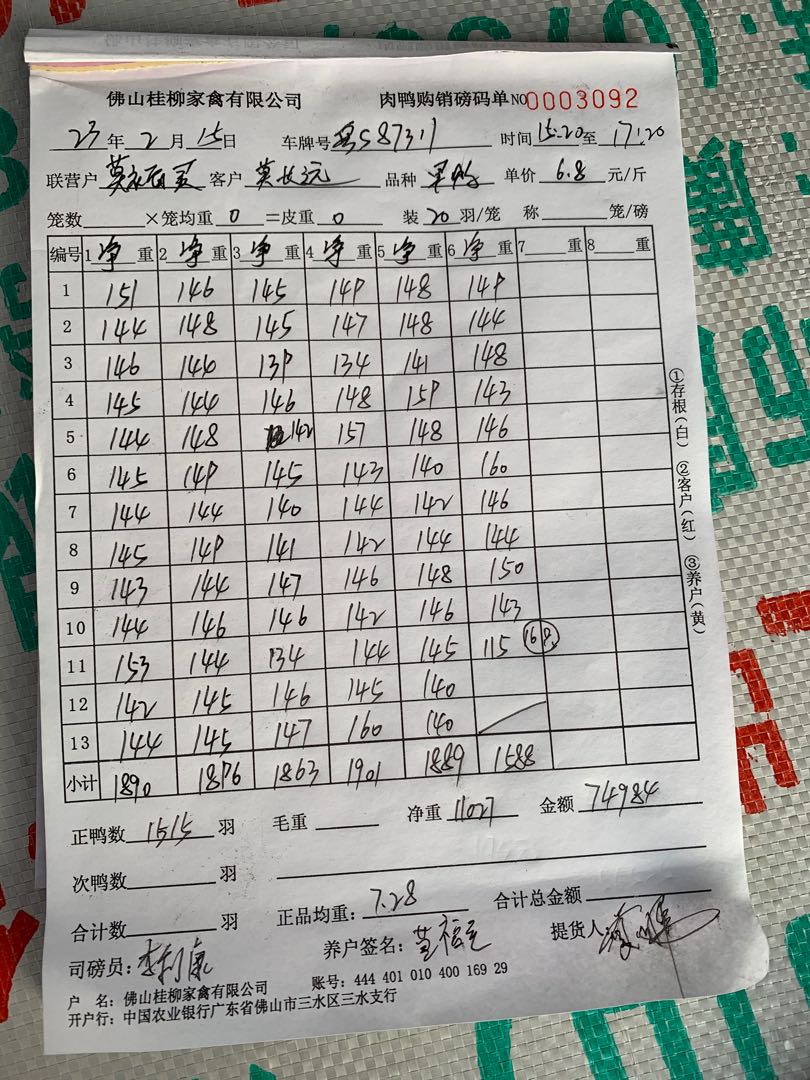 佛山桂柳家禽有限公司 肉鸭购销磅码单 NO 0003092
23年2月15日 车牌号 S87311 时间15:20至17:20
联营户 莫 客户 莫 远 品种 单价 6.8 元/斤
笼数 ×笼均重 0 =皮重 0 装 20 羽/笼 称 笼/磅
编号 1 净 重 2 净 重 3 净 重 4 净 重 5 净 重 6 净 重 7 重 8 重
1 151 146 145 149 148 149
2 144 148 145 147 148 144
3 146 144 139 134 141 148
4 145 144 146 148 159 143
5 144 148 142 157 148 146
6 145 149 145 143 140 160
7 144 144 140 144 142 146
8 145 149 141 142 144 144
9 143 144 147 146 148 150
10 144 146 146 142 146 143
11 153 144 134 144 145 115
12 142 145 146 145 140
13 144 145 147 160 140
小计 1890 1896 1863 1901 1889 1588
正鸭数 1515 羽 毛重 净重 11027 金额 74984
次鸭数 羽
合计数 羽 正品均重: 7.28 合计总金额
司磅员: 李 康 养户签名: 提货人
户 名: 佛山桂柳家禽有限公司 账号: 444 401 010 400 169 29
开户行: 中国农业银行广东省佛山市三水区三水支行
①存根(白) ②客户(红) ③养户(黄)